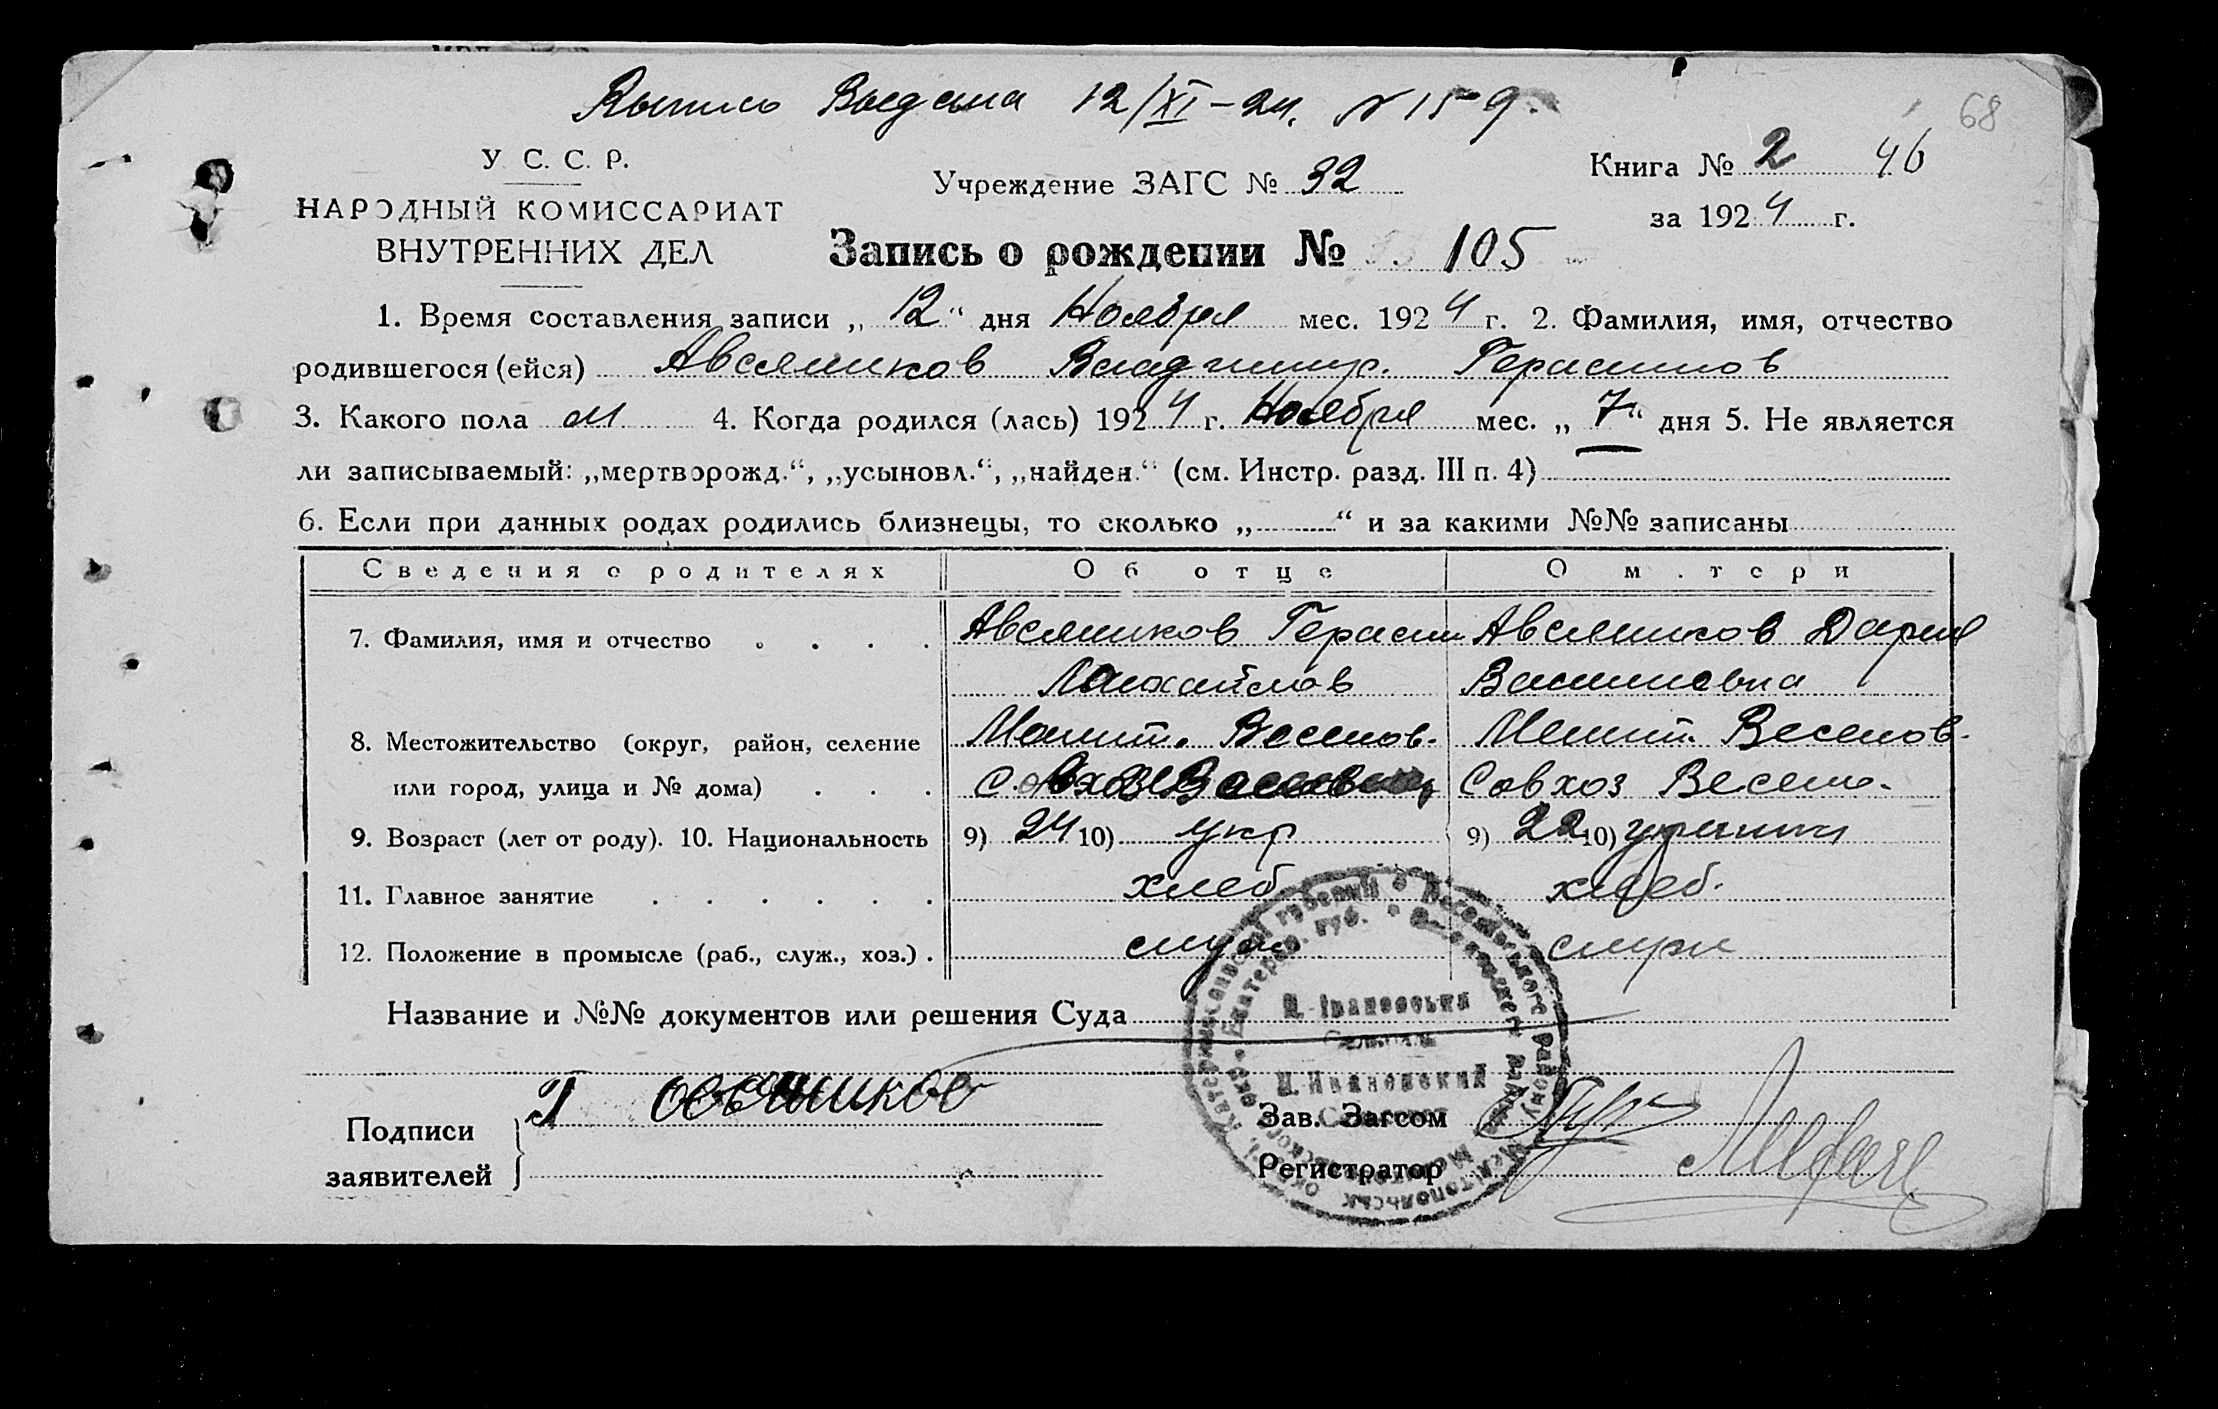 Выпись Выдана 12/XI-24. № 159.
68
У. С. С. Р.
НАРОДНЫЙ КОМИССАРИАТ
ВНУТРЕННИХ ДЕЛ
Учреждение ЗАГС № 32
Книга № 2 46
за 1924 г.
Запись о рождении № 105
1. Время составления записи „12“ дня Ноября мес. 1924 г. 2. Фамилия, имя, отчество
родившегося (ейся) Авсяников Владимир. Герасимов
3. Какого пола М 4. Когда родился (лась) 1924 г. Ноября мес. „7“ дня 5. Не является
ли записываемый: „мертворожд.“, „усыновл.“, „найден.“ (см. Инстр. разд. III п. 4)
6. Если при данных родах родились близнецы, то сколько „ “ и за какими №№ записаны
Сведения о родителях Об отце О матери
7. Фамилия, имя и отчество . . . . Авсяников Герасим Авсяников Дария
Михайлов Васильевна
8. Местожительство (округ, район, селение Мелит. Веселов. Мелит. Веселов.
или город, улица и № дома) . . . Совхоз Совхоз Весело.
9. Возраст (лет от роду). 10. Национальность 9) 24 10) укр 9) 22 10)
11. Главное занятие . . . . . . хлеб хлеб.
12. Положение в промысле (раб., служ., хоз.) . служ служ
Название и №№ документов или решения Суда
Подписи
заявителей
Г Овсяников
Зав. Загсом
Регистратор
Н.-Івановська
Н.-Ивановский